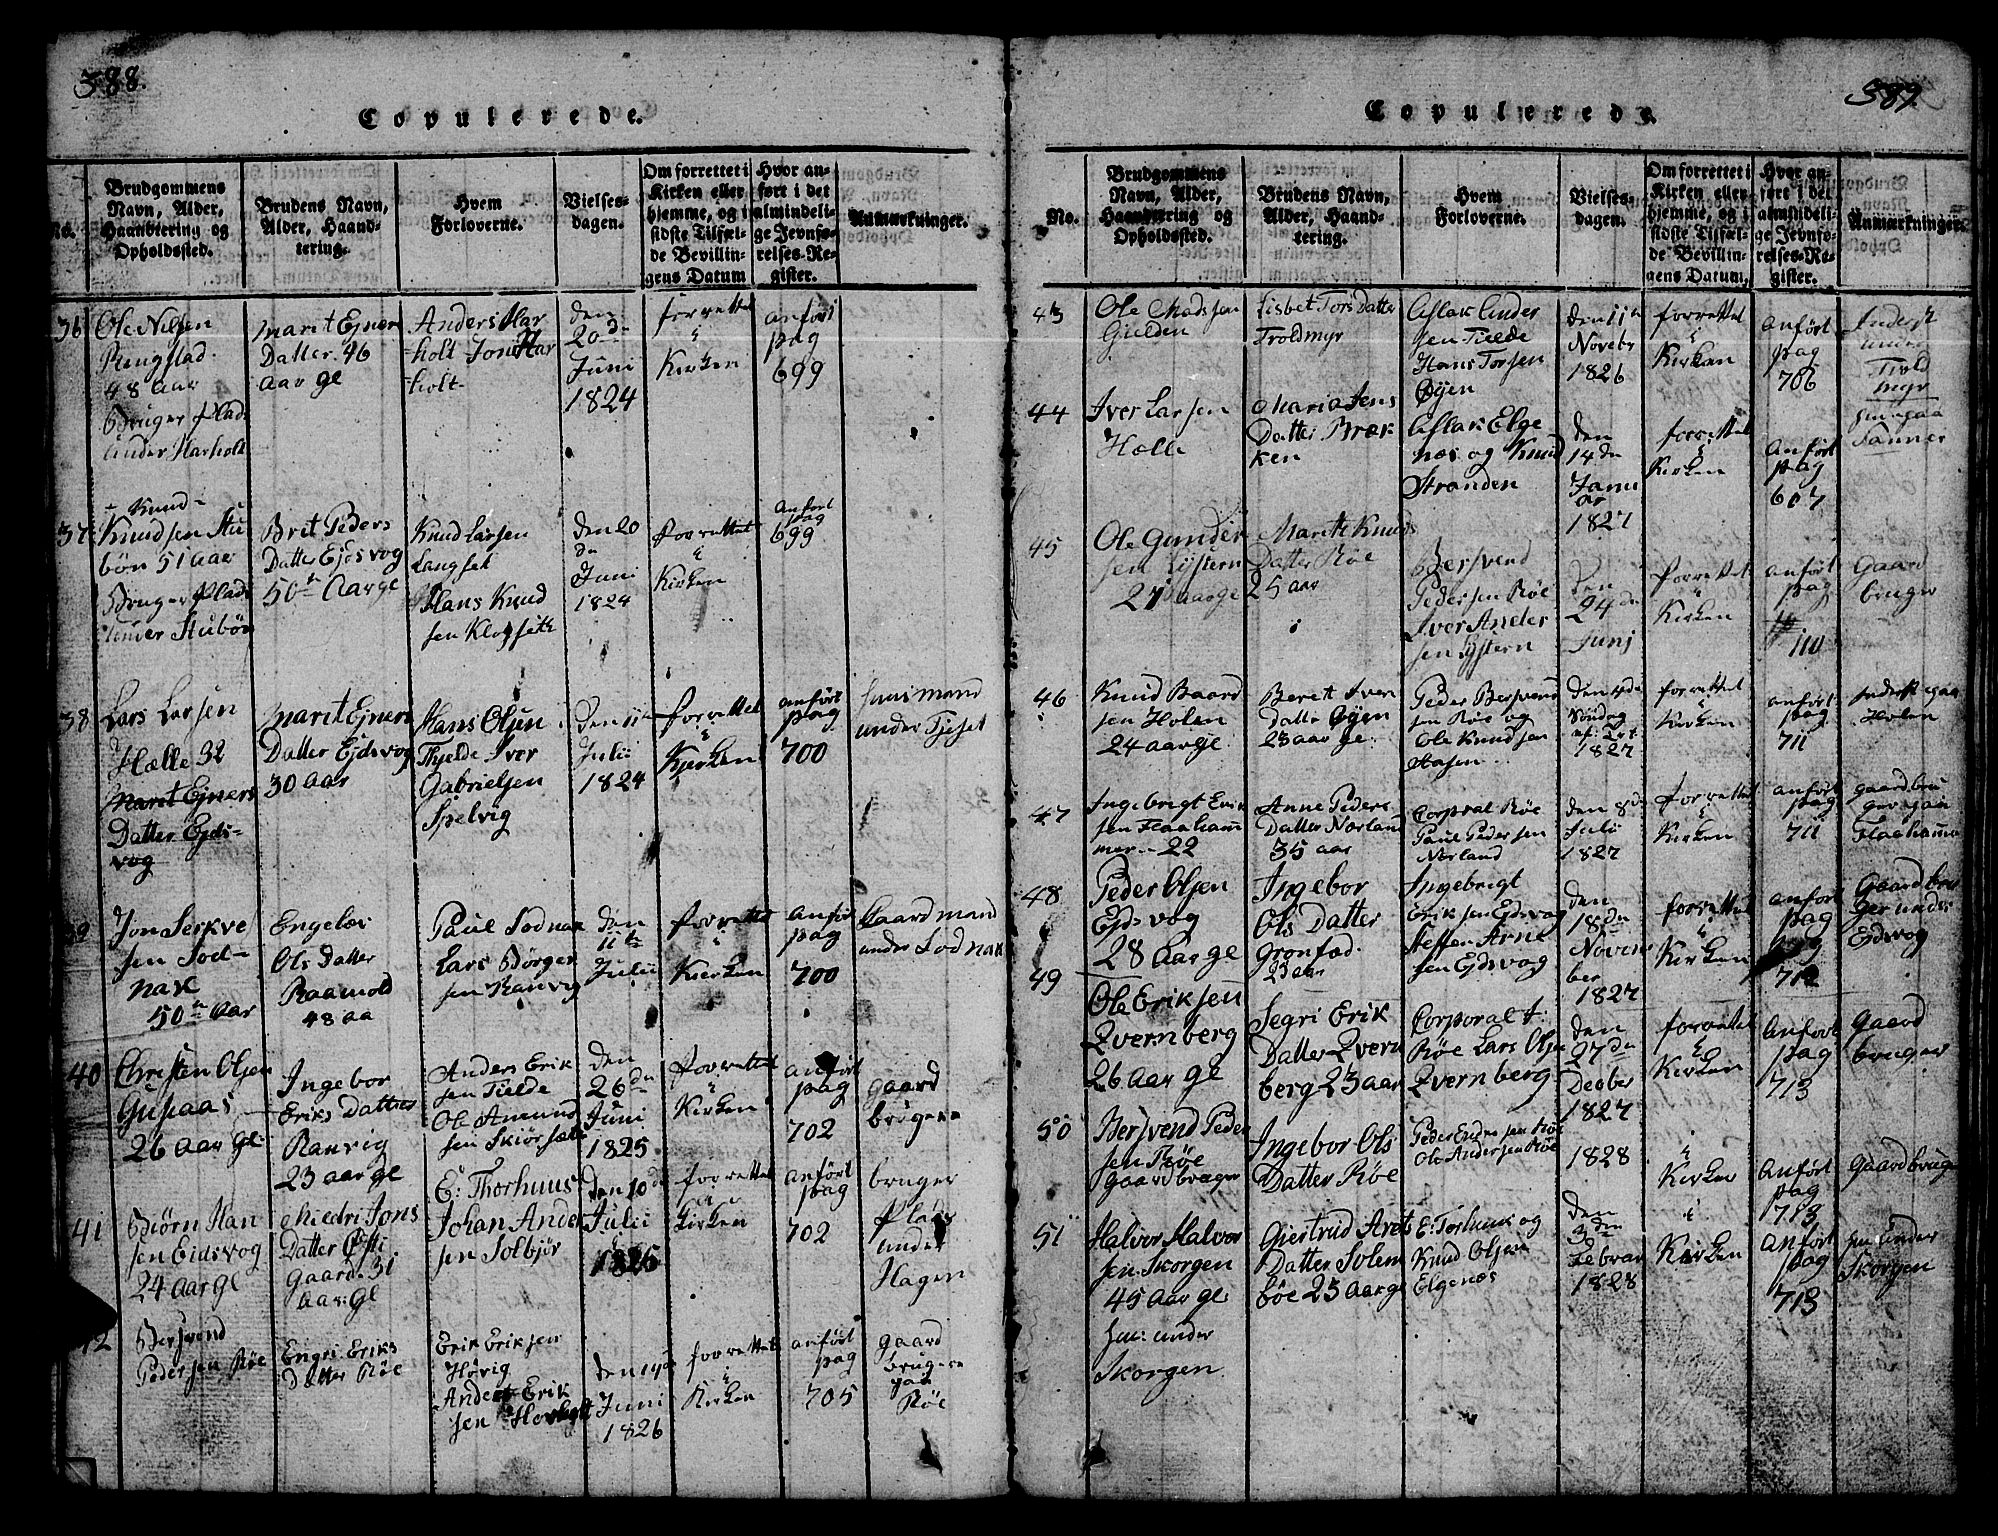 388.
Copulerede.
No.
Brudgommens
Navn, Alder,
Haandtering og
Opholdssted.
Brudens Navn,
Alder, Haand-
tering.
Hvem
Forloverne.
Vielses-
dagen.
Om forrettet i
Kirken eller
hjemme, og i
sidste Tilfæl-
de Bevillin-
gens Datum
Hvor an-
ført i det
almindeli-
ge Jevnfø-
relses-Re-
gister.
Anmærkninger.
36
Ole Nilsen
Ringstad
48 aar
Bruger Plads
under Harholt
Marit Ejners
Datter 46
aar gl
Anders Har
holt Jon Har
holt
den
20de
Juni
1824
forrettet
i
Kirken
anført
pag
699
37
- Knud -
Knudsen Stu
bön 51 aar
Bruger Plads
under Stubön
Brit Peders
Datter Ejdsvog
50 Aar ge
Knud Larsen
Langset
Hans Knud
sen Klogset
den 20
de
Juni
1824
forrettet
i
Kirken
anført
pag
699
38
Lars Larsen
Hælle 32
Marit Ejners
Datter Ejds-
vog
Marit Ejners
Datter Ejdsvog
30 aar
Hans Olsen
Thjelde Iver
Gabrielsen
Spelvig
den 11te
Julii
1824
forrettet
i
Kjerken
anført
pag
700
Huusmand
under Tjeset
39
Jon Serkve
sen Sod-
nak
50 aar
Engelev
Ols Datter
Raamold
48 aa
Paul Sodnak
Lars Börger
sen Ranvig
den
11te
Julii
forrettet
i
Kierken
anført
pag
700
Gaardmand
under Sodnak
40
Christen Olsen
Gusiaas
26 aar gl
Ingebor
Eriks Datter
Ranvig
23 aar gl
Anders Erik
sen Tielde
Ole Amund
sen Skiörsæt
den
26de
Juni
1825
forrettet
i
Kirken
anført
pag
702
gaard
brugere
41
Biörn Han
sen Eidsvog
24 aar gl
Mildri Jons
Datter Östi
Gaard 31
aar gl
E: Thorhuus
Johan Ander
sen Solbjör
den 10de
Julii
1825
forrettet
i
Kirken
anført
pag
702
bruger
Plads
under
Hagen
42
Bersvend
Pedersen Röe
Engri Eriks
Datter Röe
Erik Eriksen
Hövig
Anders Erik
sen
den 19de
Juni
1826
forrettet
i
Kirken
anført
pag
705
gaard
brugere
paa
Röe
389.
Copulerede.
No.
Brudgommens
Navn, Alder,
Haandtering og
Opholdssted.
Brudens Navn,
Alder, Haand-
tering.
Hvem
Forloverne.
Vielses-
dagen.
Om forrettet i
Kirken eller
hjemme, og i
sidste Tilfæl-
de Bevillin-
gens Datum.
Hvor an-
ført i det
almindeli-
ge Jevnfø-
relses-Re-
gister.
Anmærkninger.
43
Ole Madsen
Gielden
Lisbet Tors Datter
Troldmyr
Aslak Ander
sen Tielde
Hans Torsen
Öyen
den 11te
Novebr
1826
forrettet
i
Kirken
anført
pag
706
Inderst
under
Trold
myr
44
Iver Larsen
Hælle
Maria Jens
Datter Bræk
ken
Aslak Elge
næs og Knud
Stranden
den
14de
Janu
ar
1827
forrettet
i
Kirken
anført
pag
607
Huus paa
45
Ole Gunder
sen Lystern
27 aar ge
Marit Knuds
Datter Röe
25 aar
Bersvend
Pedersen Röe
Iver Ander
sen Lystern
den
24de
Junj
forrettet
i
Kirken
anført
pag
710
Gaard
bruger
46
Knud Baard
sen Holen
24 aar ge
Berett Iver
Datter Öyen
23 aar ge
Peder Bersvend
sen Röe og
Ole Knudsen
Hasen
den 4de
Söndag
ef: Tr:
1827
forrettet
i
Kirken
anført
pag
711
Inderst paa
Holen
47
Ingebrigt Erik
sen Flaaham
mer 22
Anne Peders
Datter Norland
35 aar
Corporal Röe
Paul Pedersen
Norland
den 8de
Julii
1827
forrettet
i
Kirken
anført
pag
711
gaardbru
ger paa
Flaahamme
48
Peder Olsen
Ejdsvog
28 Aar ge
Ingebor
Ols Datter
Gronfæd
23 aar
Ingebrigt
Eriksen Ejdsvog
Steffen Arne
sen Ejdsvog
den
18de
Novem
ber
1827
forrettet
i
Kirken
anført
pag
712
Gaardbru
ger under
Ejdsvog
49
Ole Eriksen
Qvernberg
26 aar ge
Segri Erik
Datter Qvern
berg 23 aar
Corporal
Röe Lars Olsen
Qvernberg
den
27de
Decber
1827
forrettet
i
Kirken
anført
pag
713
Gaard
bruger
50
Bersvend Peder
sen Röe
gaardbruger
Ingebor Ols
Datter Röe
Peder Endresen Röe
Ole Andersen Röe
1828
i
Kirken
anført
pag
713
Gaardbruger
51
Halvor Halvor
sen Skorgen
45 aar gl
Hm: under
Skorgen
Giertrud Arets
Datter Solem
böe 25 aar ge
E: Torhuus og
Knud Olsen
Elgenæs
den
3de
Febrar
1828
i
Kirken
anført
pag
713
Hm under
Skorgen